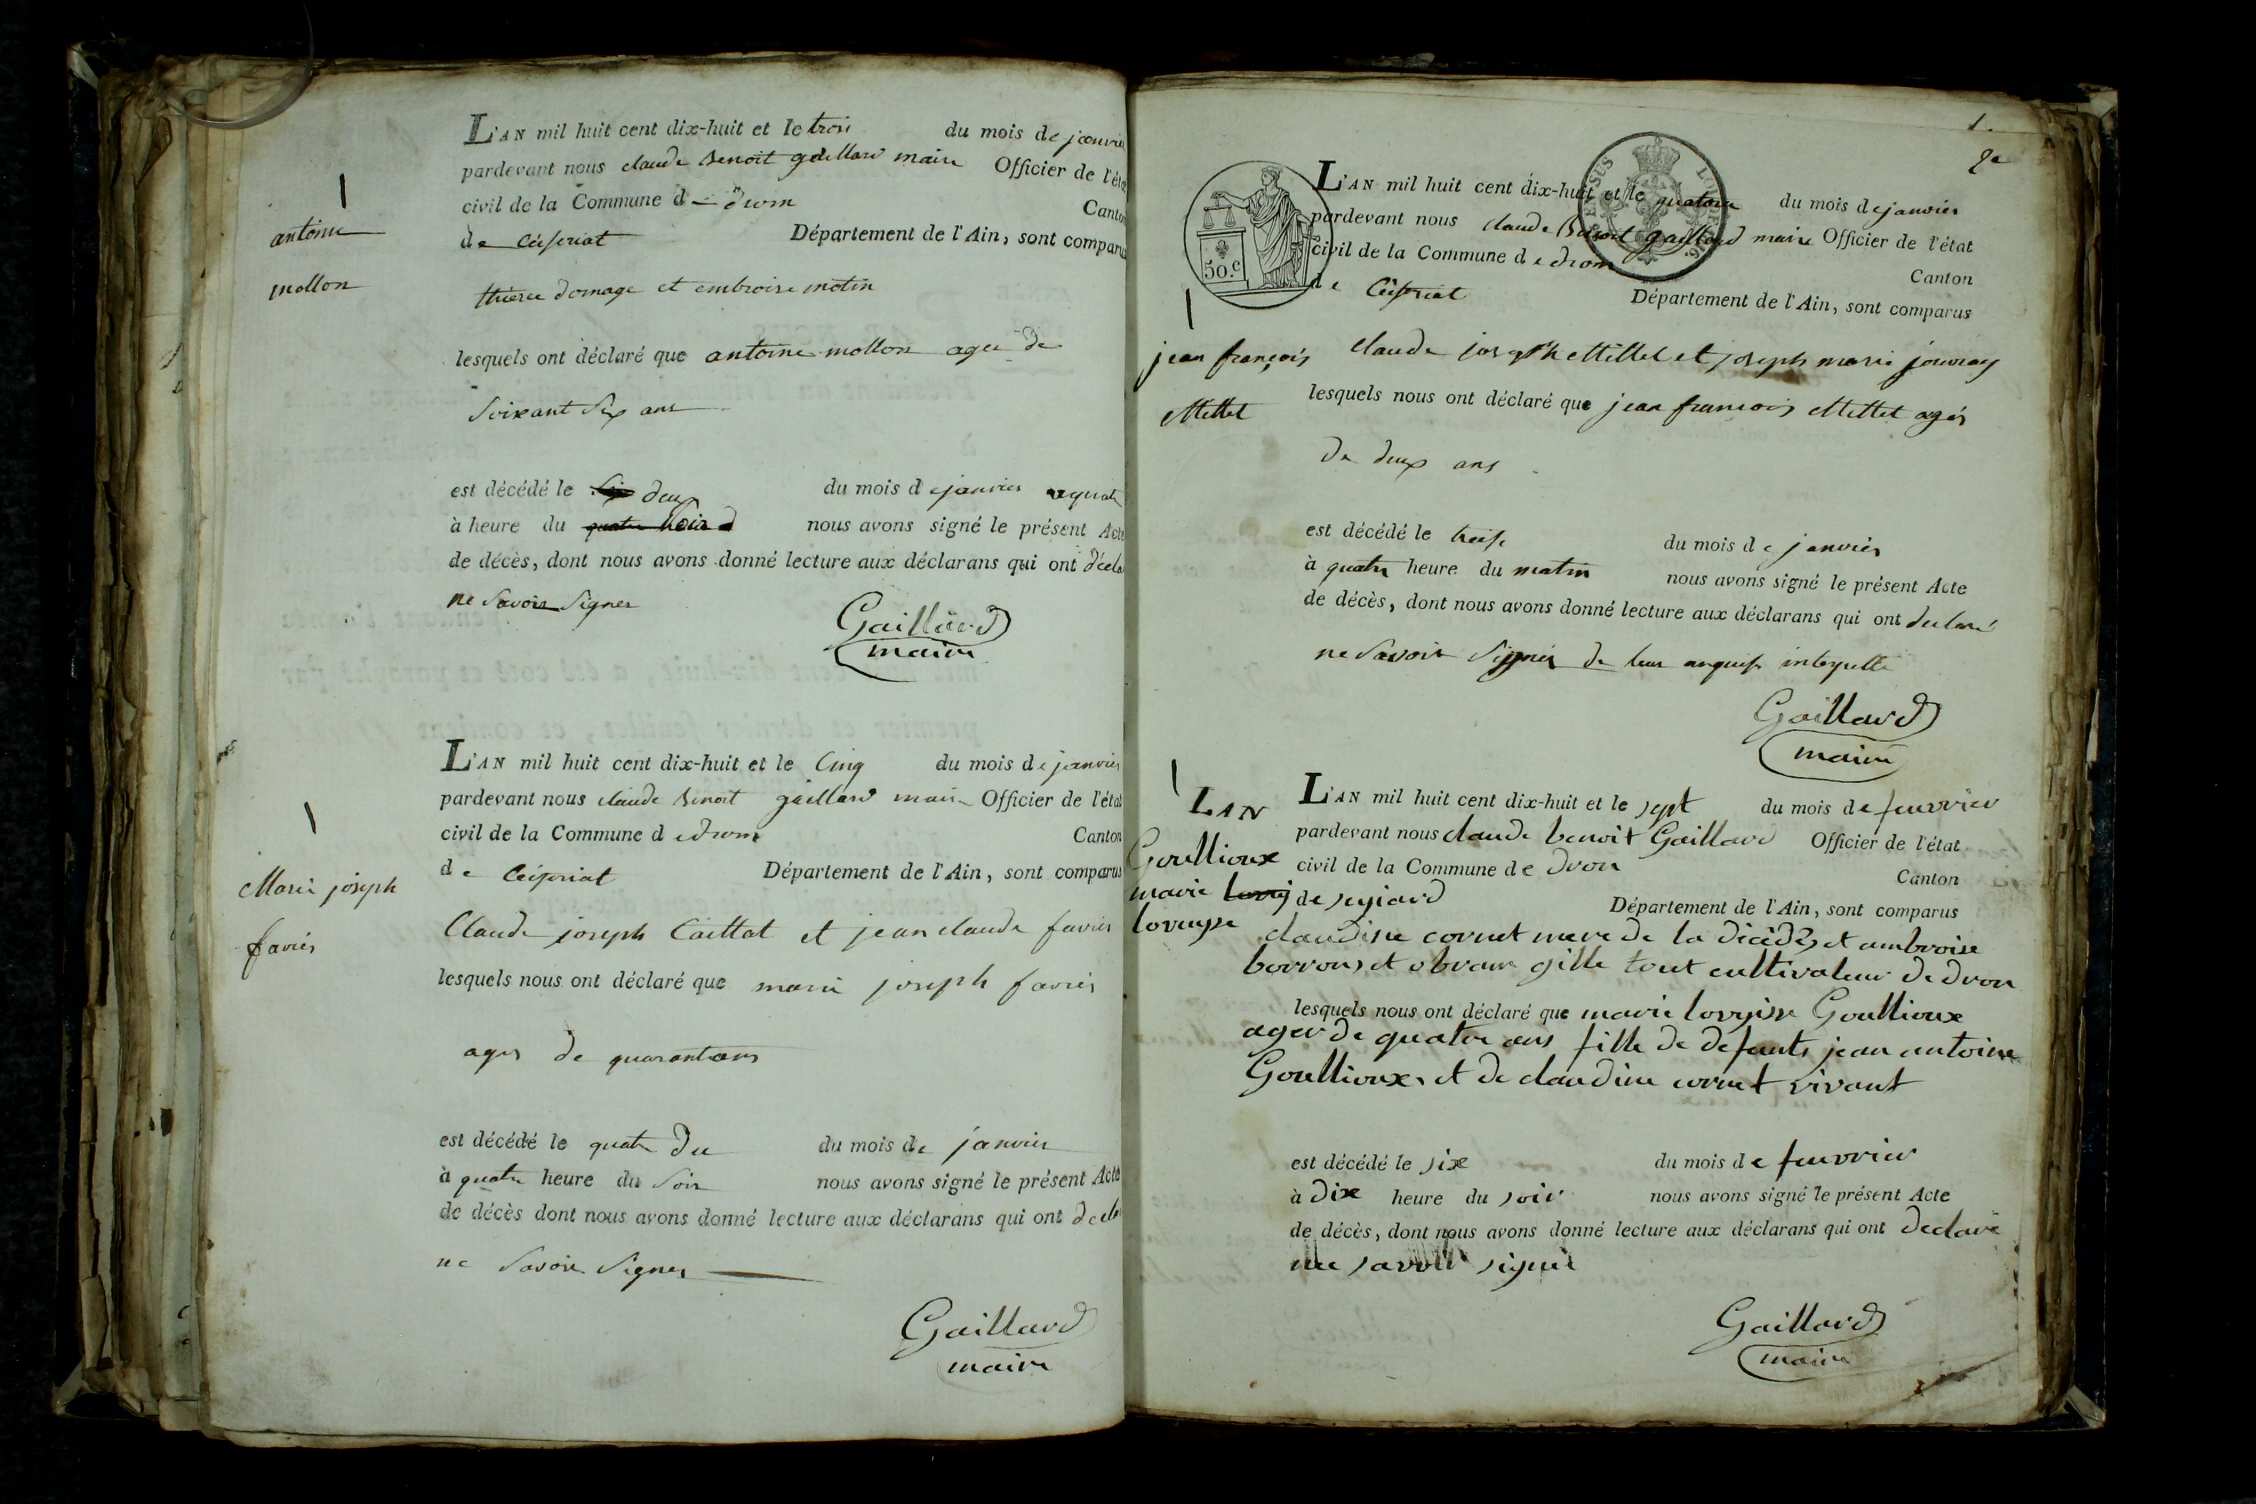 L'AN mil huit cent dix-huit et le trois du mois de janvier
pardevant nous claude Benoit gaillard maire Officier de l'éta
civil de la Commune d drom Canton
de Ceiseriat Département de l'Ain, sont comparus
antoine
mollon
domage et embroise motin
lesquels ont déclaré que antoine mollon agee de
Soixant Six ans
est décédé le deux du mois d ejanvier
à heure du nous avons signé le présent Acte
de décès, dont nous avons donné lecture aux déclarans qui ont décla
ne Savoir Signer
Gaillard
maire
L'AN mil huit cent dix-huit et le Cinq du mois de janvier
pardevant nous claude Benoit gaillard maire Officier de l'état
civil de la Commune d edrom Canton
de Ceiseriat Département de l'Ain, sont comparus
Marie joseph
favier
Claude joseph Caillat et jean claude favier
lesquels nous ont déclaré que marie joseph favier
ages de quarantans
est décédé le quatre du du mois de janvier
à quatre heure du Soir nous avons signé le présent Acte
de décès dont nous avons donné lecture aux déclarans qui ont decla
ne Savoir Signer
Gaillard
maire
1.
2e
50.c
L'AN mil huit cent dix-huit et le quatorze du mois de janvier
pardevant nous claude Benoit gaillard maire Officier de l'état
civil de la Commune d e drom
Canton
de Ceiseriat Département de l'Ain, sont comparus
jean françois
Millet
claude joseph Millet et joseph marie jouvray
lesquels nous ont déclaré que jean francois Millet agés
de deux ans
est décédé le treise du mois de janvier
à quatre heure du matin nous avons signé le présent Acte
de décès, dont nous avons donné lecture aux déclarans qui ont declaré
ne Savoir Signer de leur
Gaillard
maire
LAN
Goullioux
marie
lovuyse
L'AN mil huit cent dix-huit et le sept du mois de feuvrier
pardevant nous claude benoit Gaillard Officier de l'état
civil de la Commune de dron Canton
de Département de l'Ain, sont comparus
claudine cornet mere de la dicédé et ambroise
borron et gille tout cultivateur de dron
lesquels nous ont déclaré que marie Goullioux
ager de quatre ans fille de defunts jean antoine
Goullioux et de claudine cornet vivant
est décédé le six du mois de feuvrier
à dix heure du soir nous avons signé le présent Acte
de décès, dont nous avons donné lecture aux déclarans qui ont declaré
ne savoir signé
Gaillard
maire